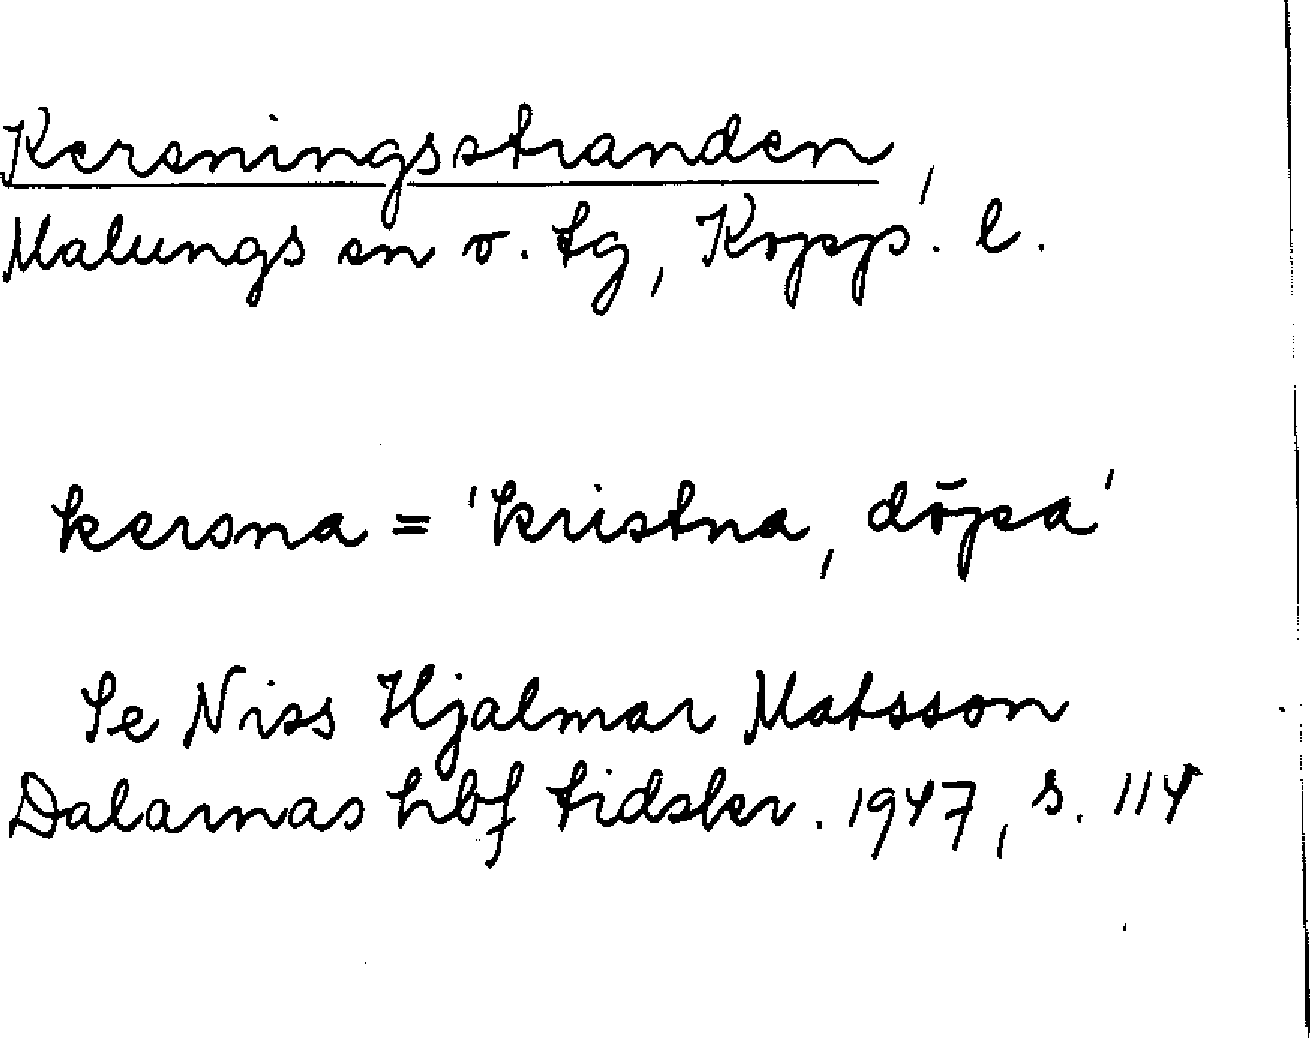 Kersningsstranden,
Malungs sn o. tg, Kopp. l.
kersna = 'kristna, döpa'
Se Niss Hjalmar Matsson
Dalarnas hbf tidskr. 1947, s. 114